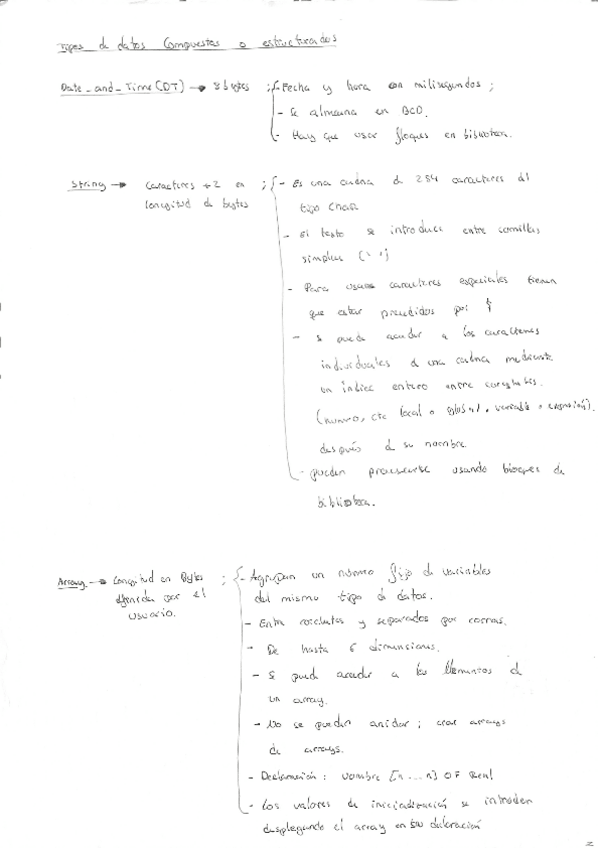 Tipos de datos Compuestos o estructurados
Date_and_Time (DT) → 8 bytes ; - Fecha y hora con milisegundos ;
- Se almacena en BCD.
- Hay que usar bloques en biblioteca.
String → Caracteres +2 en ; - Es una cadena de 254 caracteres del
longitud de bytes tipo char
- El texto se introduce entre comillas
simples (' ')
- Para usar caracteres especiales tienen
que estar precedidos por $
- Se puede acceder a los caracteres
individuales de una cadena mediante
un índice entero entre corchetes.
(número, cte local o global, variable o expresión).
después de su nombre.
- pueden procesarse usando bloques de
biblioteca.
Array → Longitud en Bytes ; - Agrupan un número fijo de variables
definida por el del mismo tipo de datos.
usuario. - Entre corchetes y separados por comas.
- De hasta 6 dimensiones.
- Se puede acceder a los elementos de
un array.
- No se pueden anidar ; crear arrays
de arrays.
- Declaración : nombre [n ... n] OF Real
- Los valores de inicialización se introducen
desplegando el array en su declaración
2